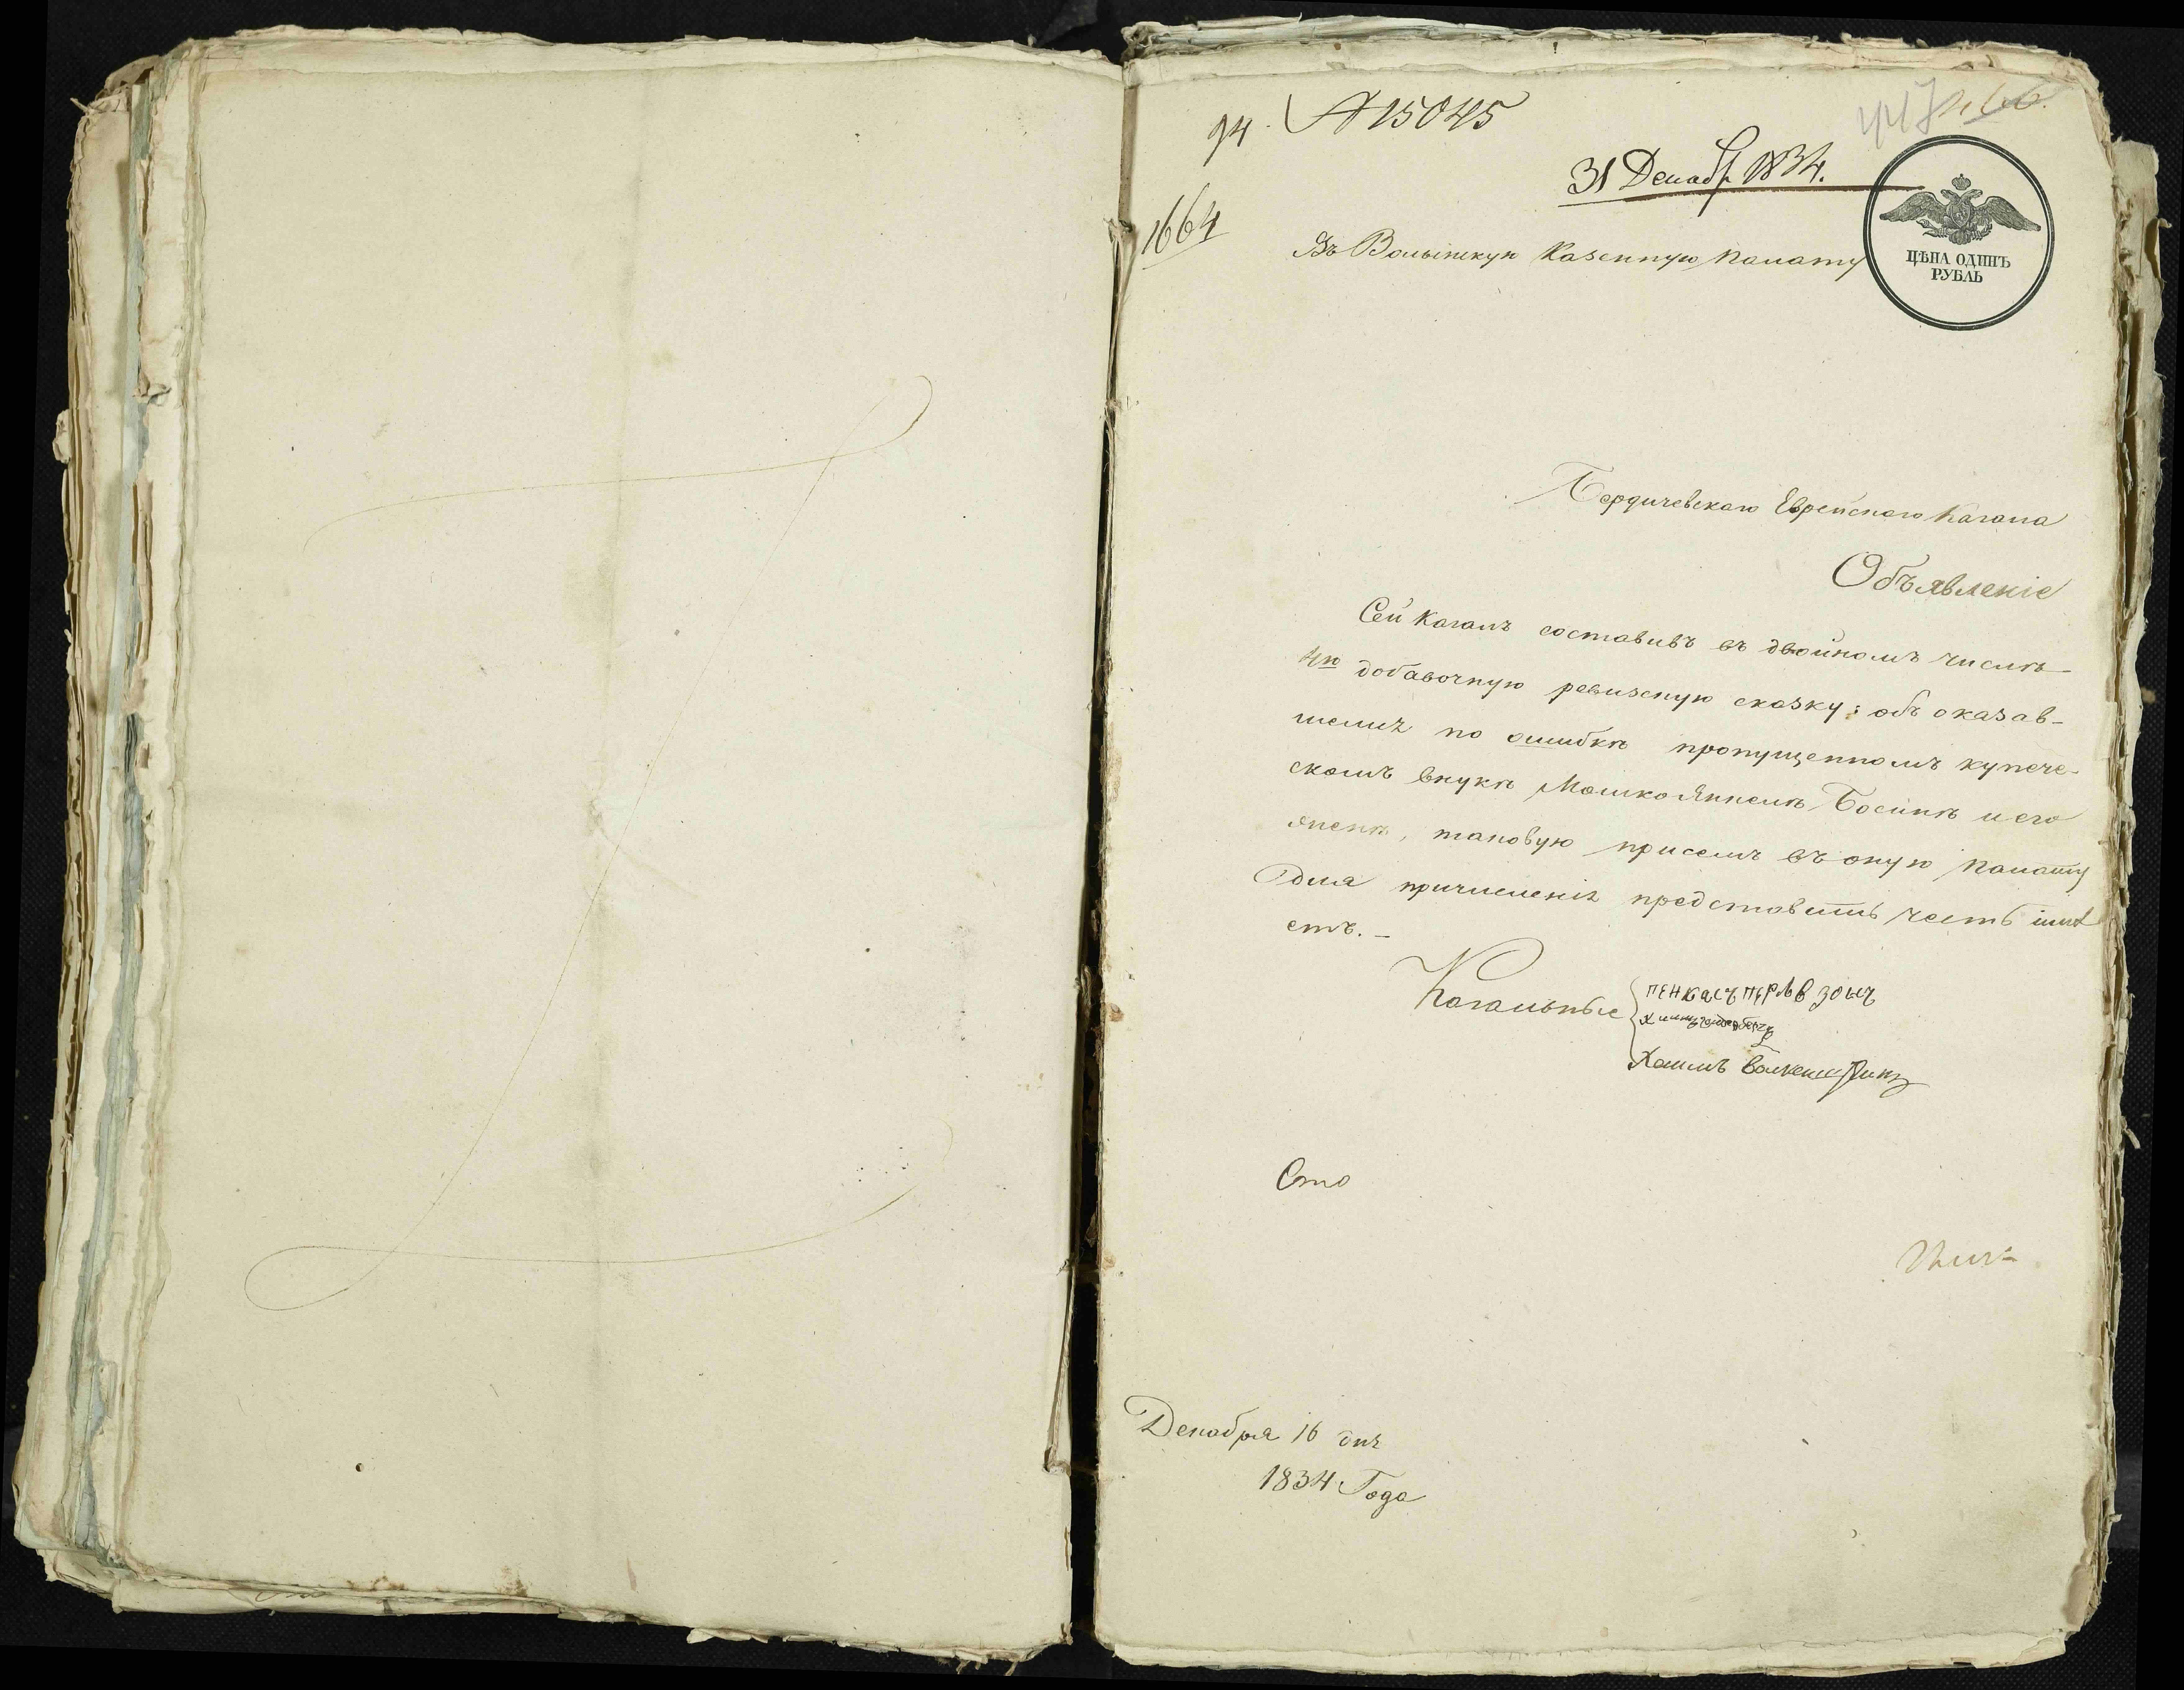 94. № 15045
447
31 Декабр 1834.
1664
Въ Волынскую Казенную палату
ЦѢНА ОДИНЪ
РУБЛЬ
Бердичевскаго Еврейскаго Кагала
Объявленіе
Сей Кагалъ составивъ въ двойномъ числѣ
4ю добавочную ревизскую сказку: объ оказав-
шемся по ошибкѣ пропущенномъ купече-
скомъ внукѣ Мошко Янкелѣ Босинѣ и его
женѣ, таковую присемъ въ оную палату
для причисленія представить честь имѣ
етъ. –
Кагальные
ПЕНКасъ ПЕРЛЬВЗОНЪ
Хаимъ
Сто
Декабря 16 дня
1834 Года